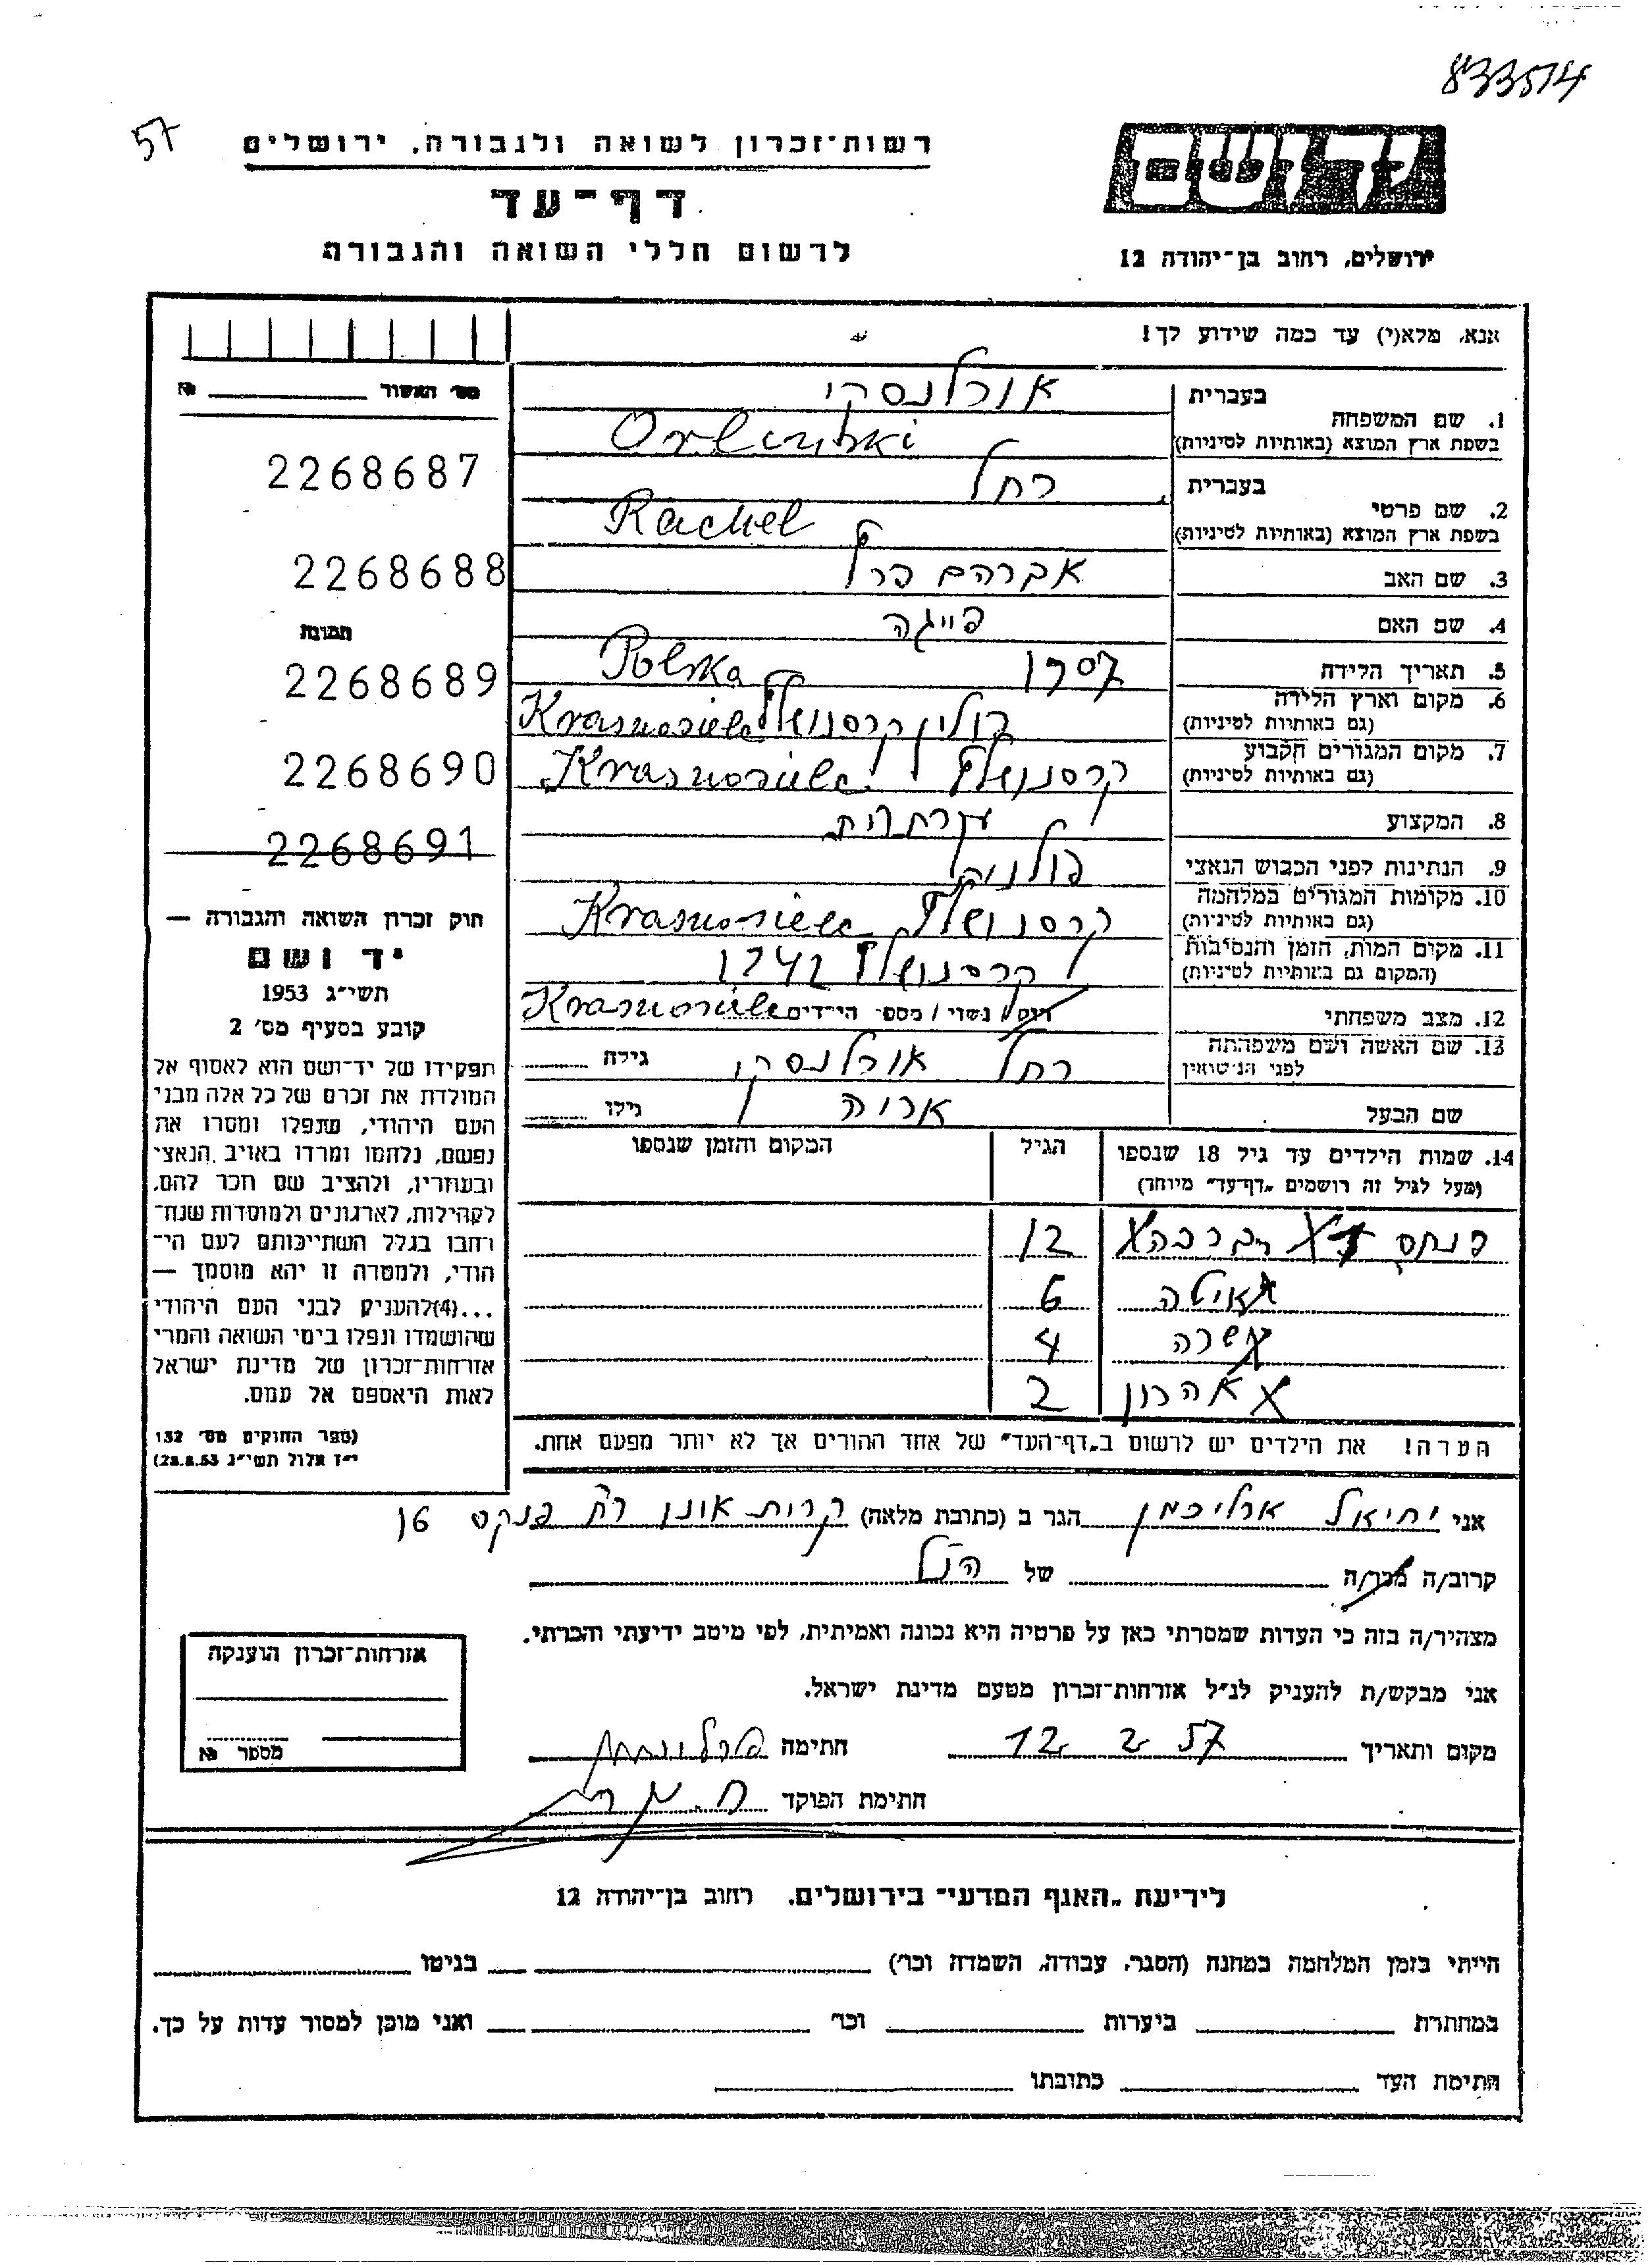 833514
57
רשות־זכרון לשואה ולגבורה, ירושלים
יד ושם
דף־עד
לרשום חללי השואה והגבורה
ירושלים, רחוב בן־יהודה 12
אנא, מלא(י) עד כמה שידוע לך!
מס׳ האשור № 
1. שם המשפחה
בעברית אורלנסקי
בשפת ארץ המוצא (באותיות לטיניות)
2268687
2. שם פרטי
בעברית רחל
בשפת ארץ המוצא (באותיות לטיניות) Rachel
2268688
3. שם האב אברהם פרל
4. שם האם פייגה
תמונה
5. תאריך הלידה 1907
2268689
6. מקום וארץ הלידה Polska
(גם באותיות לטיניות) פולין קרסנושלץ Krasnosielc
7. מקום המגורים הקבוע
(גם באותיות לטיניות) קרסנושלץ Krasnosielc
2268690
8. המקצוע עקרת בית
2268691
9. הנתינות לפני הכבוש הנאצי פולניה
10. מקומות המגורים במלחמה
(גם באותיות לטיניות) קרסנושלץ Krasnosielc
11. מקום המות, הזמן והנסיבות
(המקום גם באותיות לטיניות) קרסנושלץ 1942
Krasnosielc
12. מצב משפחתי רווק / נשוי / מספר הילדים
13. שם האשה ושם משפחתה
לפני הנישואין רחל אורלנסקי גילה
שם הבעל אריה גילו
14. שמות הילדים עד גיל 18 שנספו
(מעל לגיל זה רושמים „דף־עד" מיוחד)
הגיל
המקום והזמן שנספו
פנחס 12
6
שרה 4
אהרון 2
הערה! את הילדים יש לרשום ב„דף־העד" של אחד ההורים אך לא יותר מפעם אחת.
חוק זכרון השואה והגבורה —
יד ושם
תשי״ג 1953
קובע בסעיף מס׳ 2
תפקידו של יד־ושם הוא לאסוף אל
המולדת את זכרם של כל אלה מבני
העם היהודי, שנפלו ומסרו את
נפשם, נלחמו ומרדו באויב הנאצי
ובעוזריו, ולהציב שם וזכר להם,
לקהילות, לארגונים ולמוסדות שנח־
רבו בגלל השתייכותם לעם הי־
הודי, ולמטרה זו יהא מוסמך —
...(4)להעניק לבני העם היהודי
שהושמדו ונפלו בימי השואה והמרי
אזרחות־זכרון של מדינת ישראל
לאות היאספם אל עמם.
(ספר החוקים מס׳ 132
י״ז אלול תשי״ג 28.8.53)
אני יחיאל ארליכמן הגר ב (כתובת מלאה) קרית אונו רח׳ פנקס 16
קרוב/ה מכר/ה של הנ״ל
מצהיר/ה בזה כי העדות שמסרתי כאן על פרטיה היא נכונה ואמיתית, לפי מיטב ידיעתי והכרתי.
אני מבקש/ת להעניק לנ״ל אזרחות־זכרון מטעם מדינת ישראל.
מקום ותאריך 12 2 57 חתימה
חתימת הפוקד
אזרחות־זכרון הוענקה
מספר №
לידיעת „האגף המדעי" בירושלים. רחוב בן־יהודה 12
הייתי בזמן המלחמה במחנה (הסגר, עבודה, השמדה וכו׳) בגיטו
במחתרת ביערות וכו׳ ואני מוכן למסור עדות על כך.
חתימת העד כתובתו